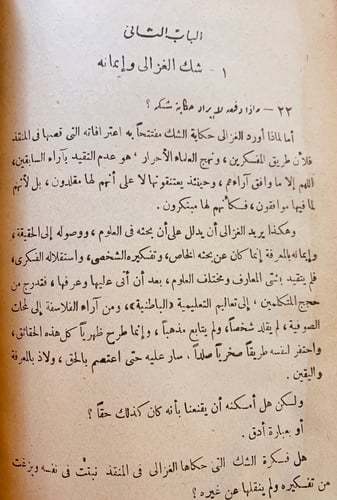 الباب الثانى
١ - شك الغزالى وإيمانه
٢٢ - ماذا دفعه لإيراد حكاية شكه ؟
أما لماذا أورد الغزالى حكاية الشك مفتتحاً به اعترافاته التى قصها فى المنقذ
فلأن طريق المفكرين ، ونهج العلماء الأحرار ' هو عدم التقيد بآراء السابقين ،
اللهم إلا ما وافق آراءهم ، وحينئذ يعتنقونها لا على أنهم لها مقلدون ، بل لأنهم
لما فيها موافقون ، فكأنهم لها مبتكرون .
وهكذا يريد الغزالى أن يدلل على أن بحثه فى العلوم ، ووصوله إلى الحقيقة ،
وإيمانه بالمعرفة إنما كان عن بحثه الخاص ، وتفكيره الشخصى ، واستقلاله الفكرى ،
فلم يتقيد بشتى المعارف ومختلف العلوم ، بعد أن أتى عليها وعرفها ، فتدرج من
حجج المتكلمين ، إلى تعاليم التعليمية «الباطنية» ، ومن آراء الفلاسفة إلى لمحات
الصوفية ، لم يقلد شخصاً ، ولم يتابع مذهباً ، وإنما طرح ظهرياً كل هذه الحقائق ،
واحتفر لنفسه طريقاً صخرياً صلداً . سار عليه حتى اعتصم بالحق ، ولاذ بالمعرفة
واليقين .
ولكن هل أمكنه أن يقنعنا بأنه كان كذلك حقاً ؟
أو بعبارة أدق .
هل فكرة الشك التى حكاها الغزالى فى المنقذ نبتت فى نفسه وبزغت
من تفكيره ولم ينقلها عن غيره ؟